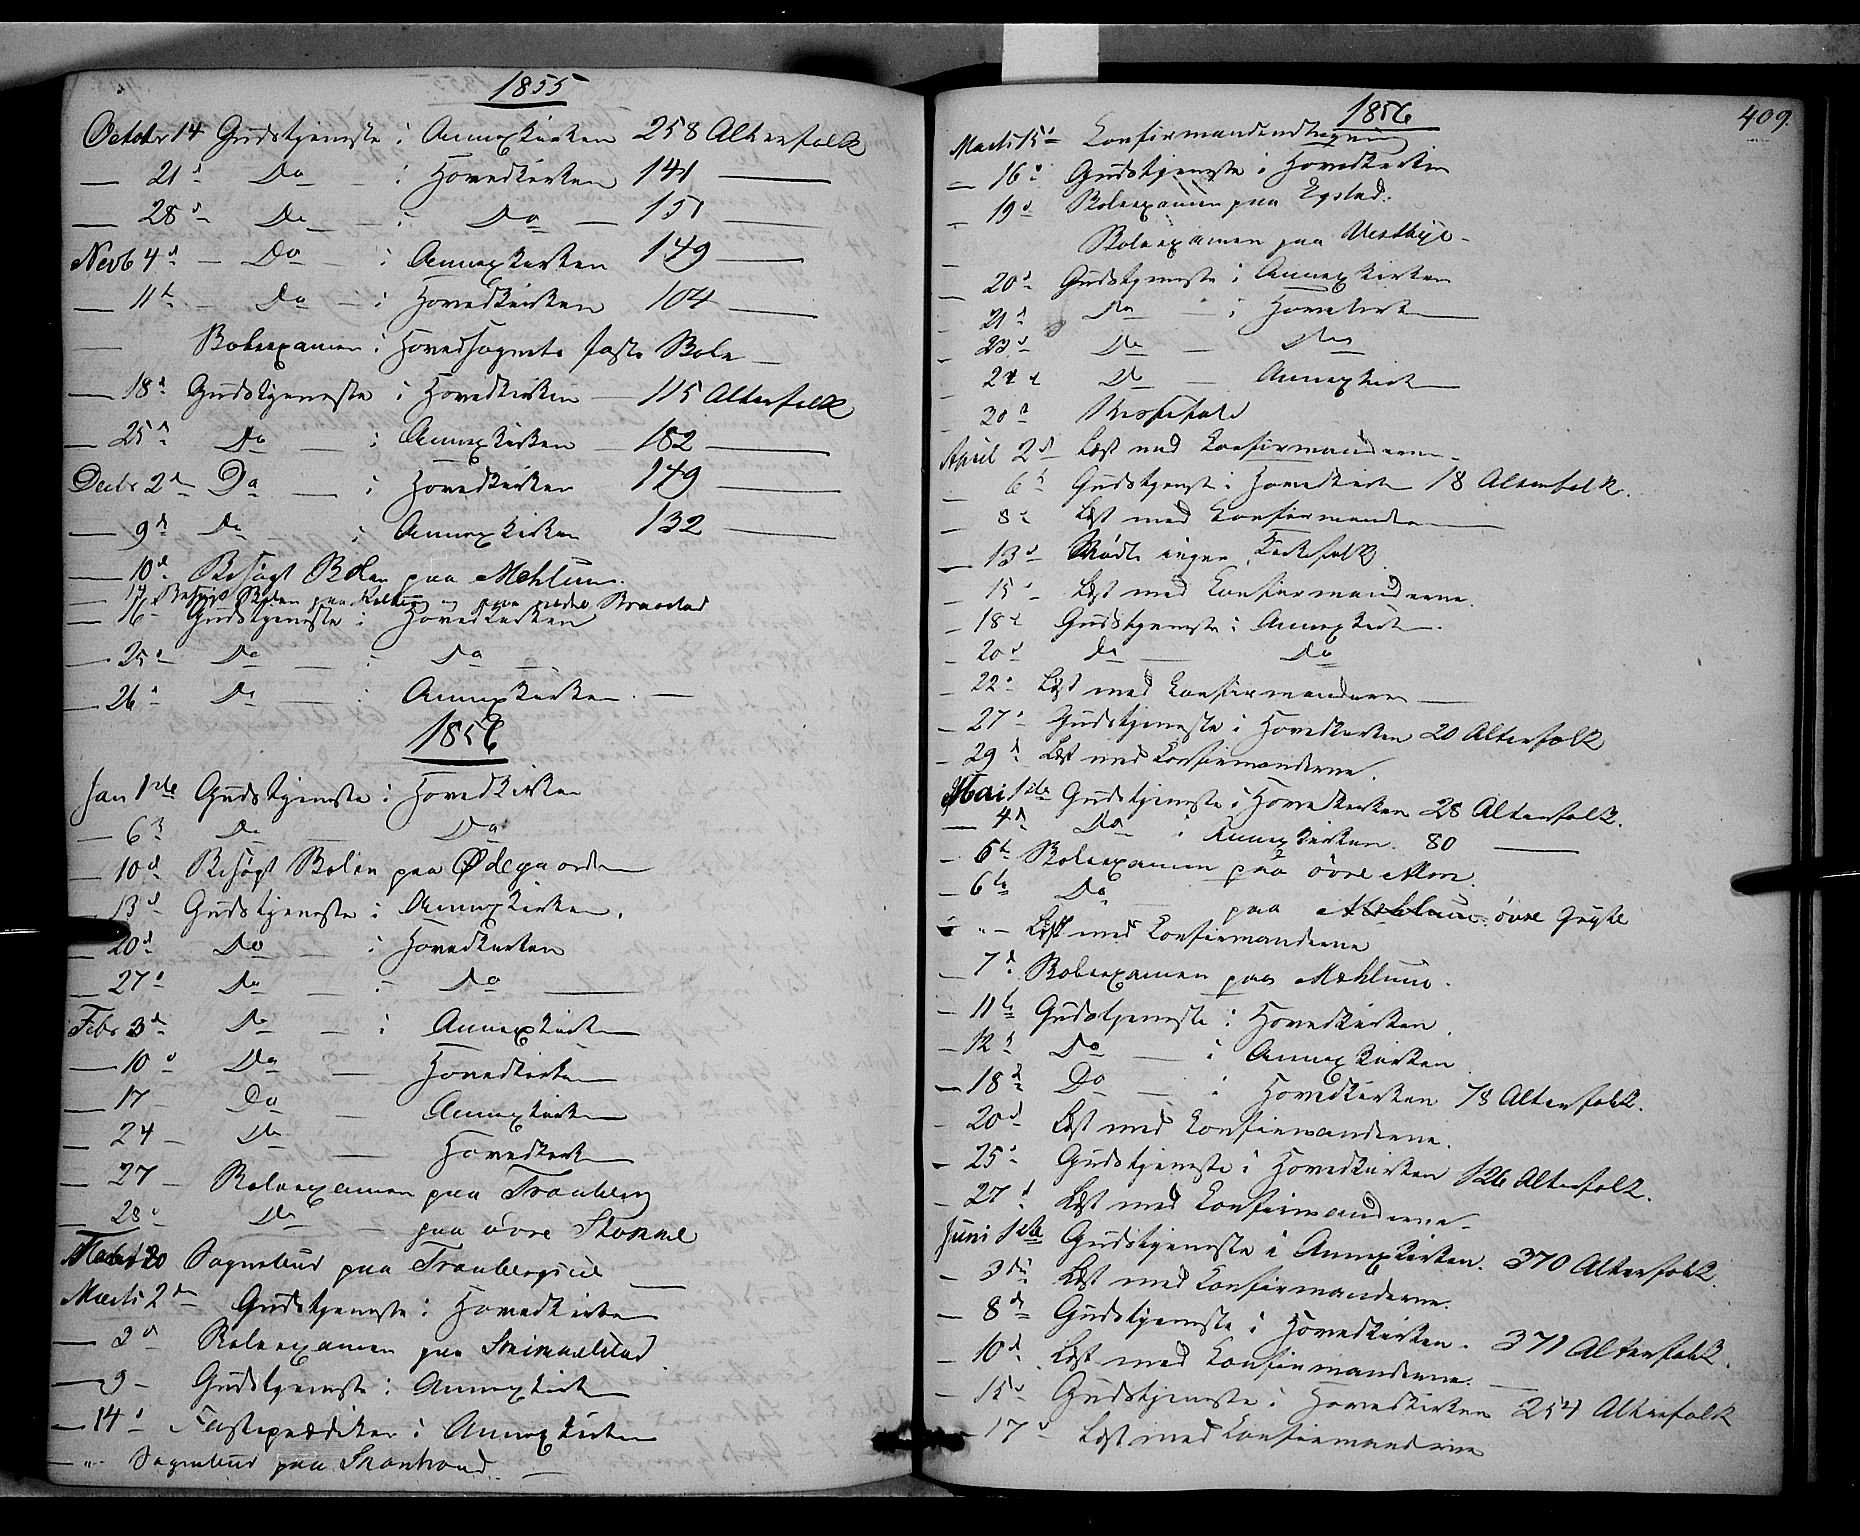 1855
Octobr 14 Gudstjeneste i Annexkirken 258 Altersfolk
— 21d Do — i Hovedkirken 141 —
— 28d — Do — i Do — 151 —
Novb 4d — Do — i Annexkirken 149 —
— 11te — Do — i Hovedkirken 104 —
— Skoleexamen i Hovedsognets faste Skole —
— 18d Gudstjeneste i Hovedkirken — 115 Altersfolk
— 25d Do — i Annexkirken — 182 —
Decbr 2den Do — i Hovedkirken 149 —
— 9de Do — i Annexkirken 132 —
— 10d Besøgt Skolen paa Mehlum.
— 14 Besøgt Skolen paa og paa nedre Braastad
— 16 — Gudstjeneste i Hovedkirken
— 25d Do — i Do —
— 26d Do — i Annexkirken. —
1856
Jan 1ste Gudstjeneste i Hovedkirken
— 6te Do — Do
— 10d Besøgt Skolen paa Ødegaarden
— 13d Gudstjeneste i Annexkirken.
— 20d Do i Hovedkirken
— 27d Do — i — Do —
Febr 3de Do — i Annexkirken
— 10d Do — Hovedkirken
— 17 — Do — Annexkirken
— 24 — Do — Hovedkirken
— 27 — Skoleexamen paa Tranberg
— 28d Do — paa øvre Stokke
Sognebud paa Tranbergsie —
Marts 2den Gudstjeneste i Hovedkirken
— 3d Skoleexamen paa
— 9 — Gudstjeneste i Annexkirken
— 14d Fasteprædiken i Annexkirken
— " Sognebud paa —
409.
1856
Marts 15d Confirmandindtegning
— 16d Gudstjeneste i Hovedkirken
— 19d Skoleexamen paa Egstad.
— Skoleexamen paa Vestbye —
— 20d Gudstjeneste i Annexkirken
— 21d Do — i Hovedkirken
— 23d Do — Do
— 24d Do — Annexkirk
— 30d Messefald
April 2d Læst med Confirmanderne —
— 6te Gudstjeneste i Hovedkirken 18 Altersfolk.
— 8d Læst med Confirmanderne
— 13d Mødte ingen Kirkefolk
— 15d — Læst med Confirmanderne.
— 18d Gudstjeneste i Annexkirken.
— 20d do — Do
— 22d Læst med Confirmanderne —
— 27d Gudstjeneste i Hovedkirken 20 Altersfolk
— 29d Læst med Confirmanderne.
Mai 1ste Gudstjeneste i Hovedkirken 28 Altersfolk.
— 4d Do i Annexkirken. 80 —
— 5te Skoleexamen paa øvre Alm.
— 6te Do — paa Mehlum øvre
— " — Læst med Confirmanderne
— 7d Skoleexamen paa Mæhlum.
— 11te Gudstjeneste i Hovedkirken.
— 12te Do — i Annexkirken
— 18d Do — i Hovedkirken 78 Altersfolk.
— 20d Læst med Confirmanderne.
— 25d Gudstjeneste i Hovedkirken 126 Altersfolk.
— 27d Læst med Confirmanderne —
Juni 1ste Gudstjeneste i Annexkirken. 370 Altersfolk.
— 3die Læst med Confirmanderne.
— 8de Gudstjeneste i Hovedkirken. 371 Altersfolk.
— 10d Læst med Confirmanderne. —
— 15d Gudstjeneste i Hovedkirken 254 Altersfolk
— 17d Læst med Confirmanderne